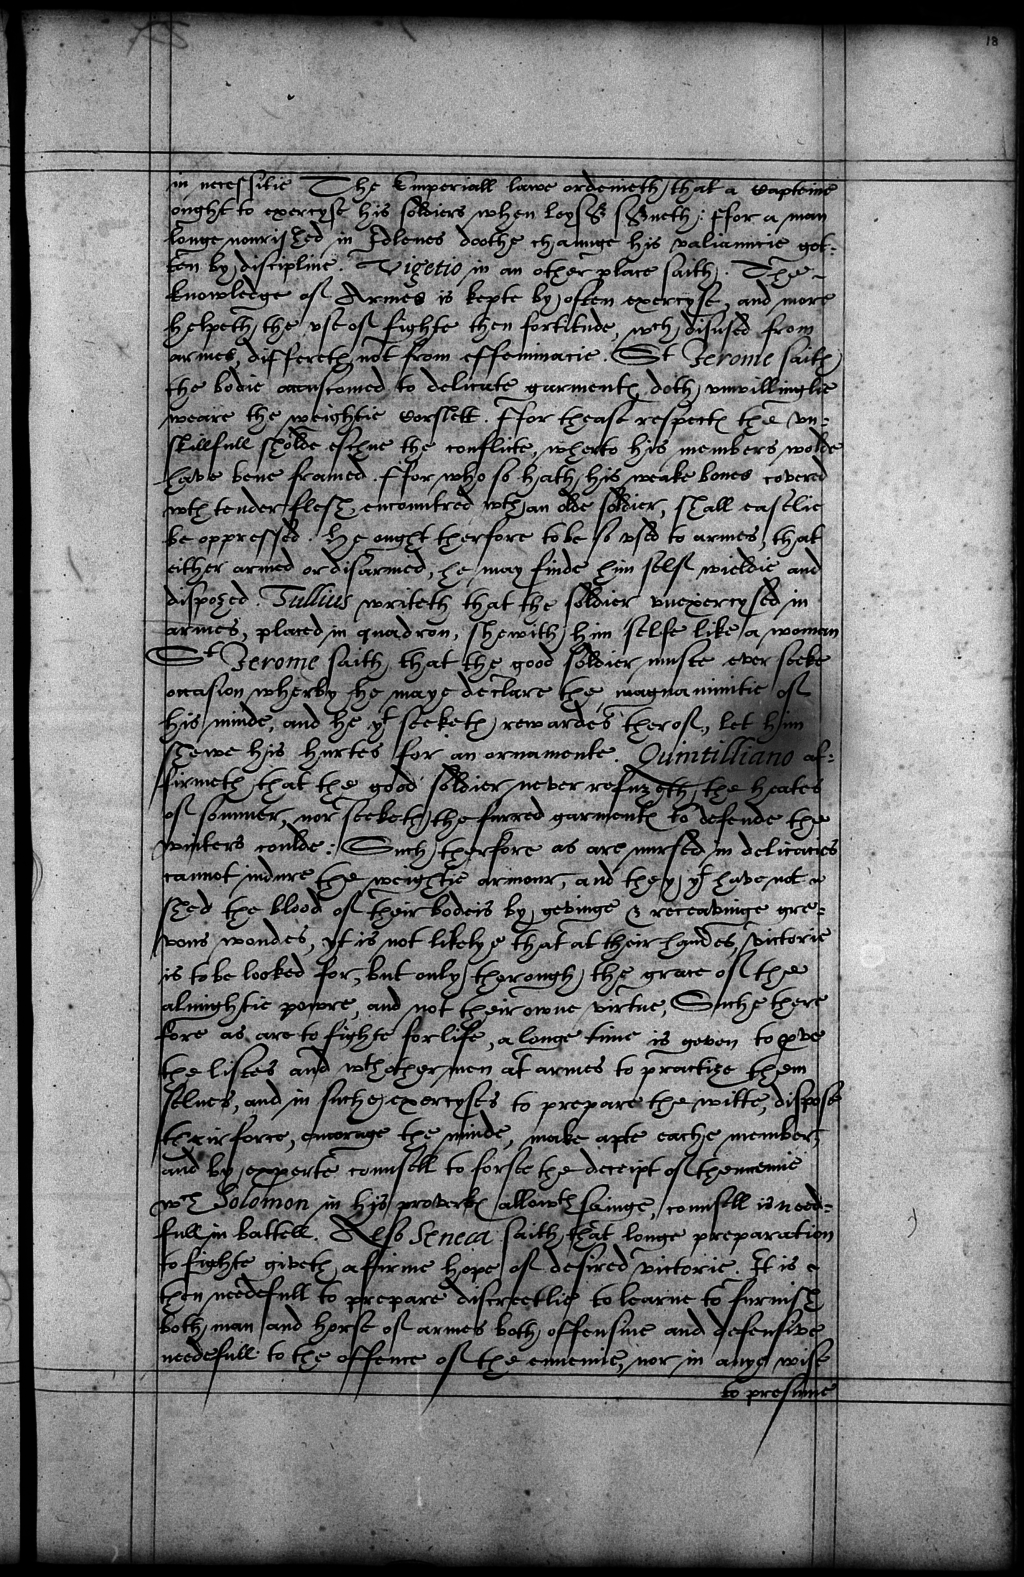 18
in necessitie The Emperiall lawe ordeineth, that a Capteine
ought to exercyse his soldiers when leysure : ffor a man
longe nourished in Idlenes doothe chaunge his valiauncie got-
ten by discipline. Vigetio in an other place saith. The
knowledge of Armes is kepte by often exercyse, and more
helpeth the use of fighte then fortitude, wch disused from
armes, differeth not from effeminacie. St Jerome saith
the bodie accustomed to delicate garmentes doth unwillinglie
weare the weightie Corslett. ffor thease respectes the un-
skillfull sholde eschue the conflicte, wherto his members wolde
have bene framed. ffor who so hath his weake bones covered
wth tender flesh, encountred wth an olde soldier, shall easelie
be oppressed. He ought therfore to be so used to armes, that
either armed or disarmed, he may finde him self wieldie and
disposed. Tullius writeth that the soldier unexercysed in
armes, placed in quadron, shewith him selfe like a woman
St Jerome saith that the good soldier muste ever seeke
occasion wherby he maye declare the magnanimitie of
his minde, and he yt seeketh rewardes therof, let him
shewe his hurtes for an ornamente. Quintilliano af-
firmeth that the good soldier never refuzeth the heates
of sommer, nor seeketh the furred garmentes to defende the
winters coulde: Such therfore as are nursed in delicacies
cannot indure the weightie armour, and they yt have not
shed the blood of their bodeis by gevinge & receavinge gre-
vous woundes, yt is not likelye that at their handes, victorie
is to be looked for, but only thorough the grace of the
almightie powre, and not their owne virtue, Suche there
fore as are to fighte for life, a longe time is geven to pve
the listes and wth other men at armes to practize them
selves, and in suche exercyses to prepare the witte, dispose
their force, encorage the minde, make apte eache member,
and by experte counsell to forsee the deceipt of thennemie
wch Solomon in his proverbes allowth sainge, counsell is need-
full in battell. Also Seneca saith that longe preparation
to fighte giveth a firme hope of desired victorie. It is
then needefull to prepare discreetlie to learne to furnish
both man and horse of armes both offensive and defensive
needefull to the offence of the ennemie, nor in anye wise
to presume